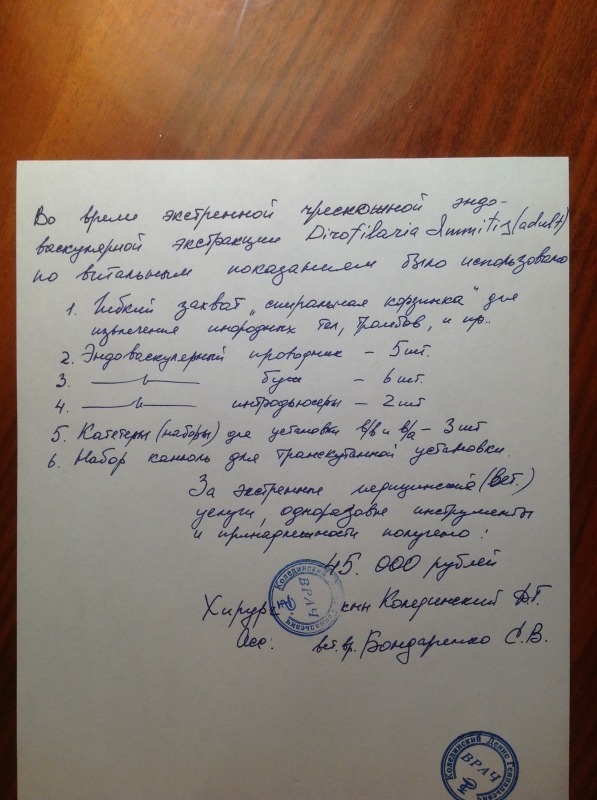 Во время экстренной чрескожной эндо-
васкулярной экстракции Dirofilaria Immitis (adult)
по витальным показаниям было использовано
1. Гибкий захват „спиральная корзинка" для
извлечения инородных тел, тромбов, и пр..
2. Эндоваскулярный проводник – 5 шт.
3. —— " —— буж – 6 шт.
4. —— " —— интродьюсеры – 2 шт
5. Катетеры (наборы) для установки в/в и в/а – 3 шт
6. Набор канюль для транскутанной установки.
За экстренные медицинские (вет.)
услуги, одноразовые инструменты
и принадлежности получено:
45.000 рублей
Хирург кнн Колединский Д.Г.
Асс: вет.вр. Бондаренко С.В.
Колединский Геннадьевич
ВРАЧ
Колединский Денис Геннадьевич
ВРАЧ